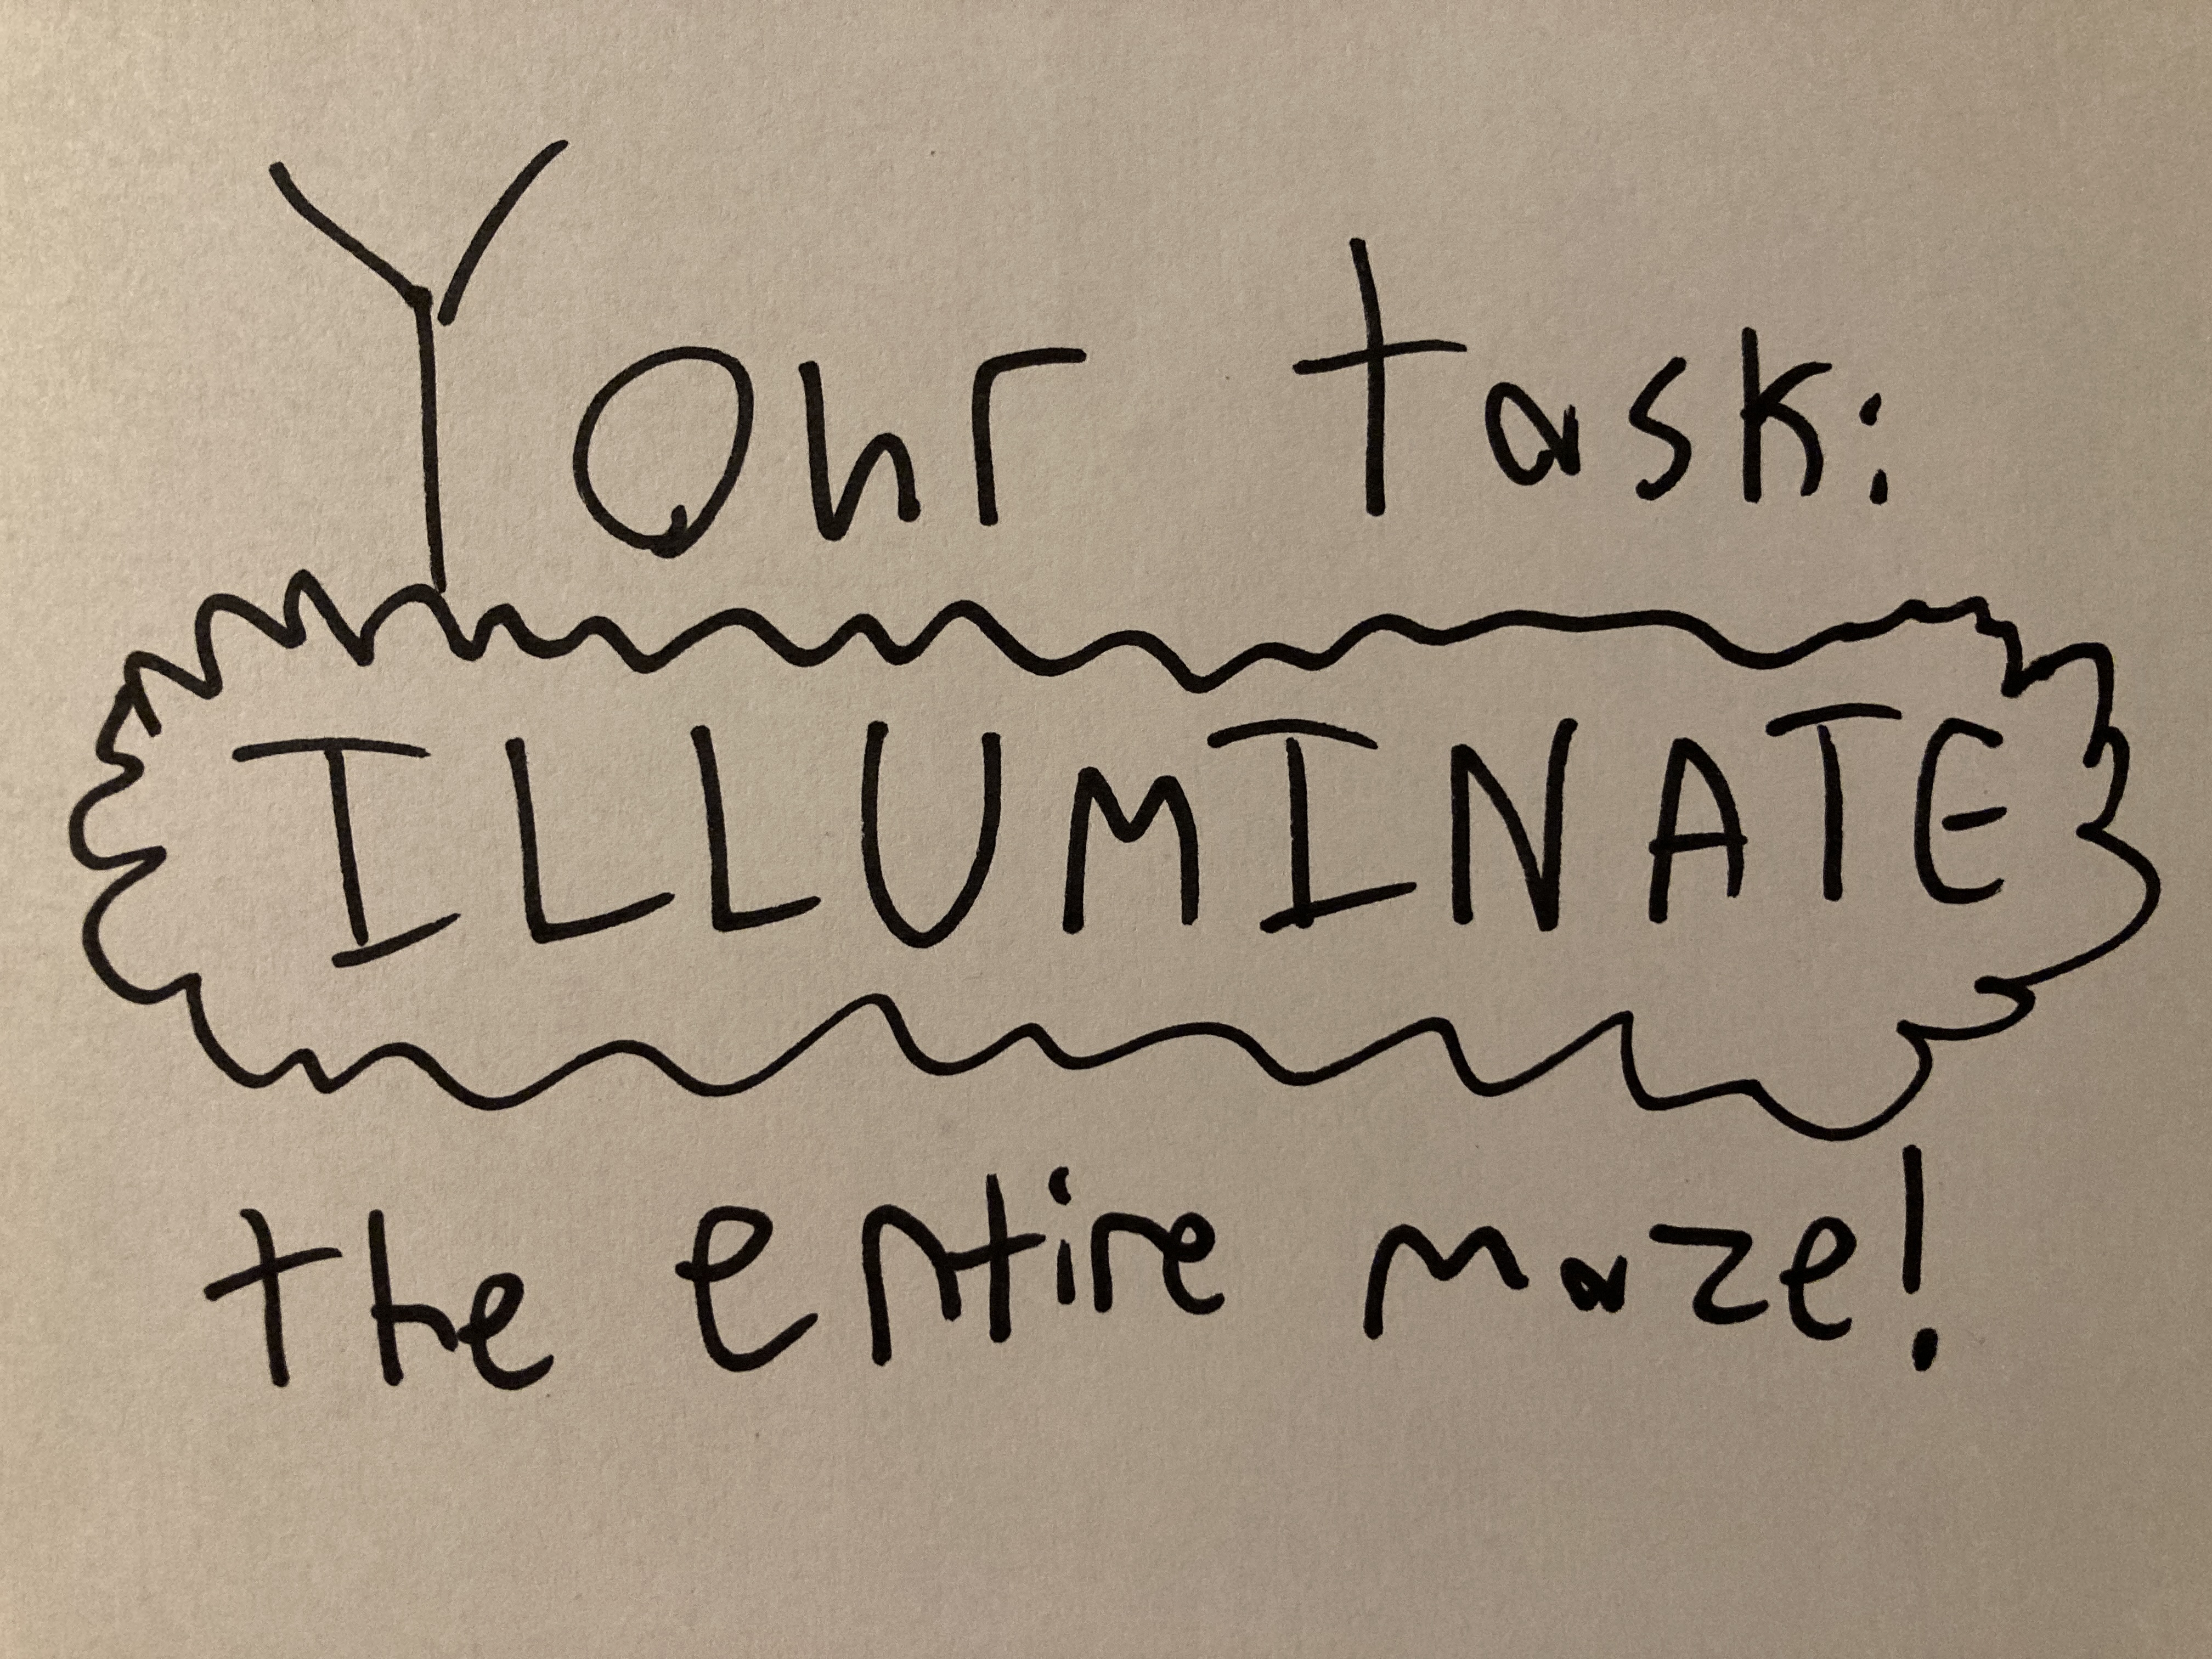 Your task:
ILLUMINATE
the entire maze!